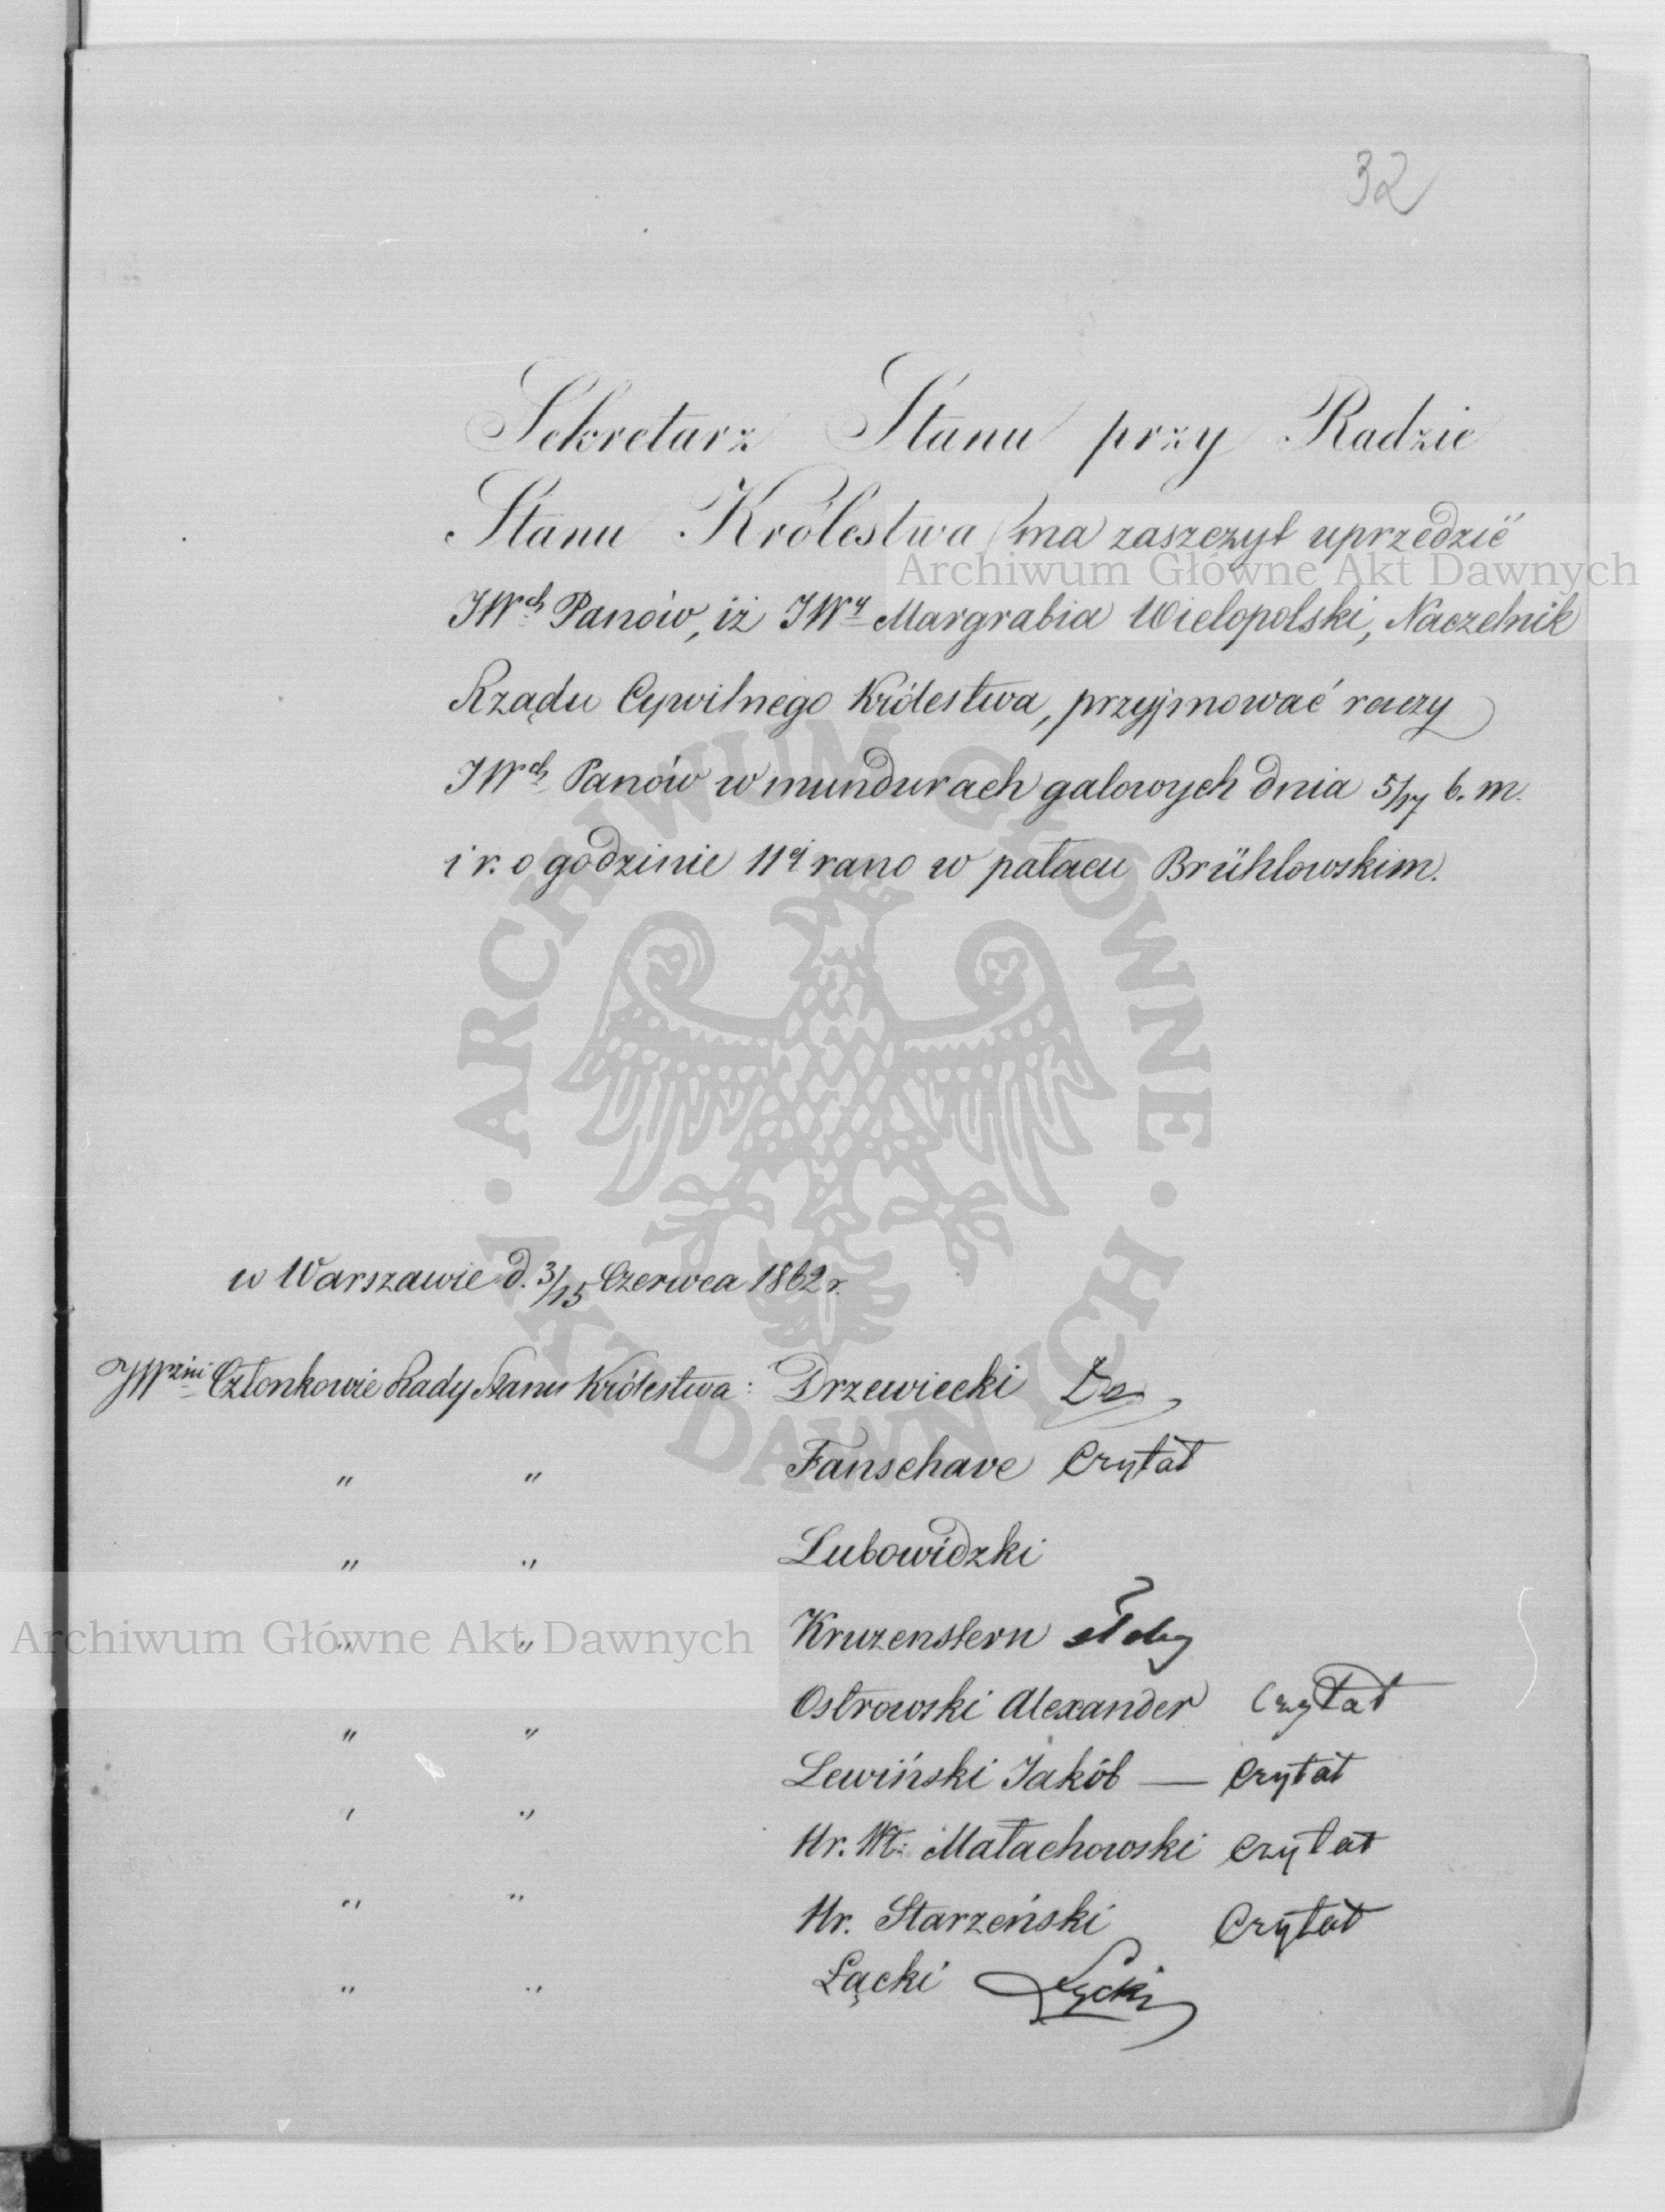 32
Sekretarz Stanu przy Radzie
Stanu Królestwa ma zaszczyt uprzedzić
Archiwum Główne Akt Dawnych
JWch Panów, iż JWy Margrabia Wielopolski, Naczelnik
Rządu Cywilnego Królestwa, przyjmować raczy
JWch Panów w mundurach galowych dnia 5/17 b. m.
i r. o godzinie 11ej rano w pałacu Brühlowskim.
ARCHIWUM GŁÓWNE AKT DAWNYCH
w Warszawie d. 3/15 Czerwca 1862 r.
JWżni Członkowie Rady Stanu Królestwa: Drzewiecki
" " Fanschave Czytał
" " Lubowidzki
Archiwum Główne Akt Dawnych
" " Kruzenstern
" " Ostrowski Alexander Czytał
" " Lewiński Jakób — Czytał
" " Hr. Wł: Małachowski Czytał
" " Hr. Starzeński Czytał
" " Łącki Łącki